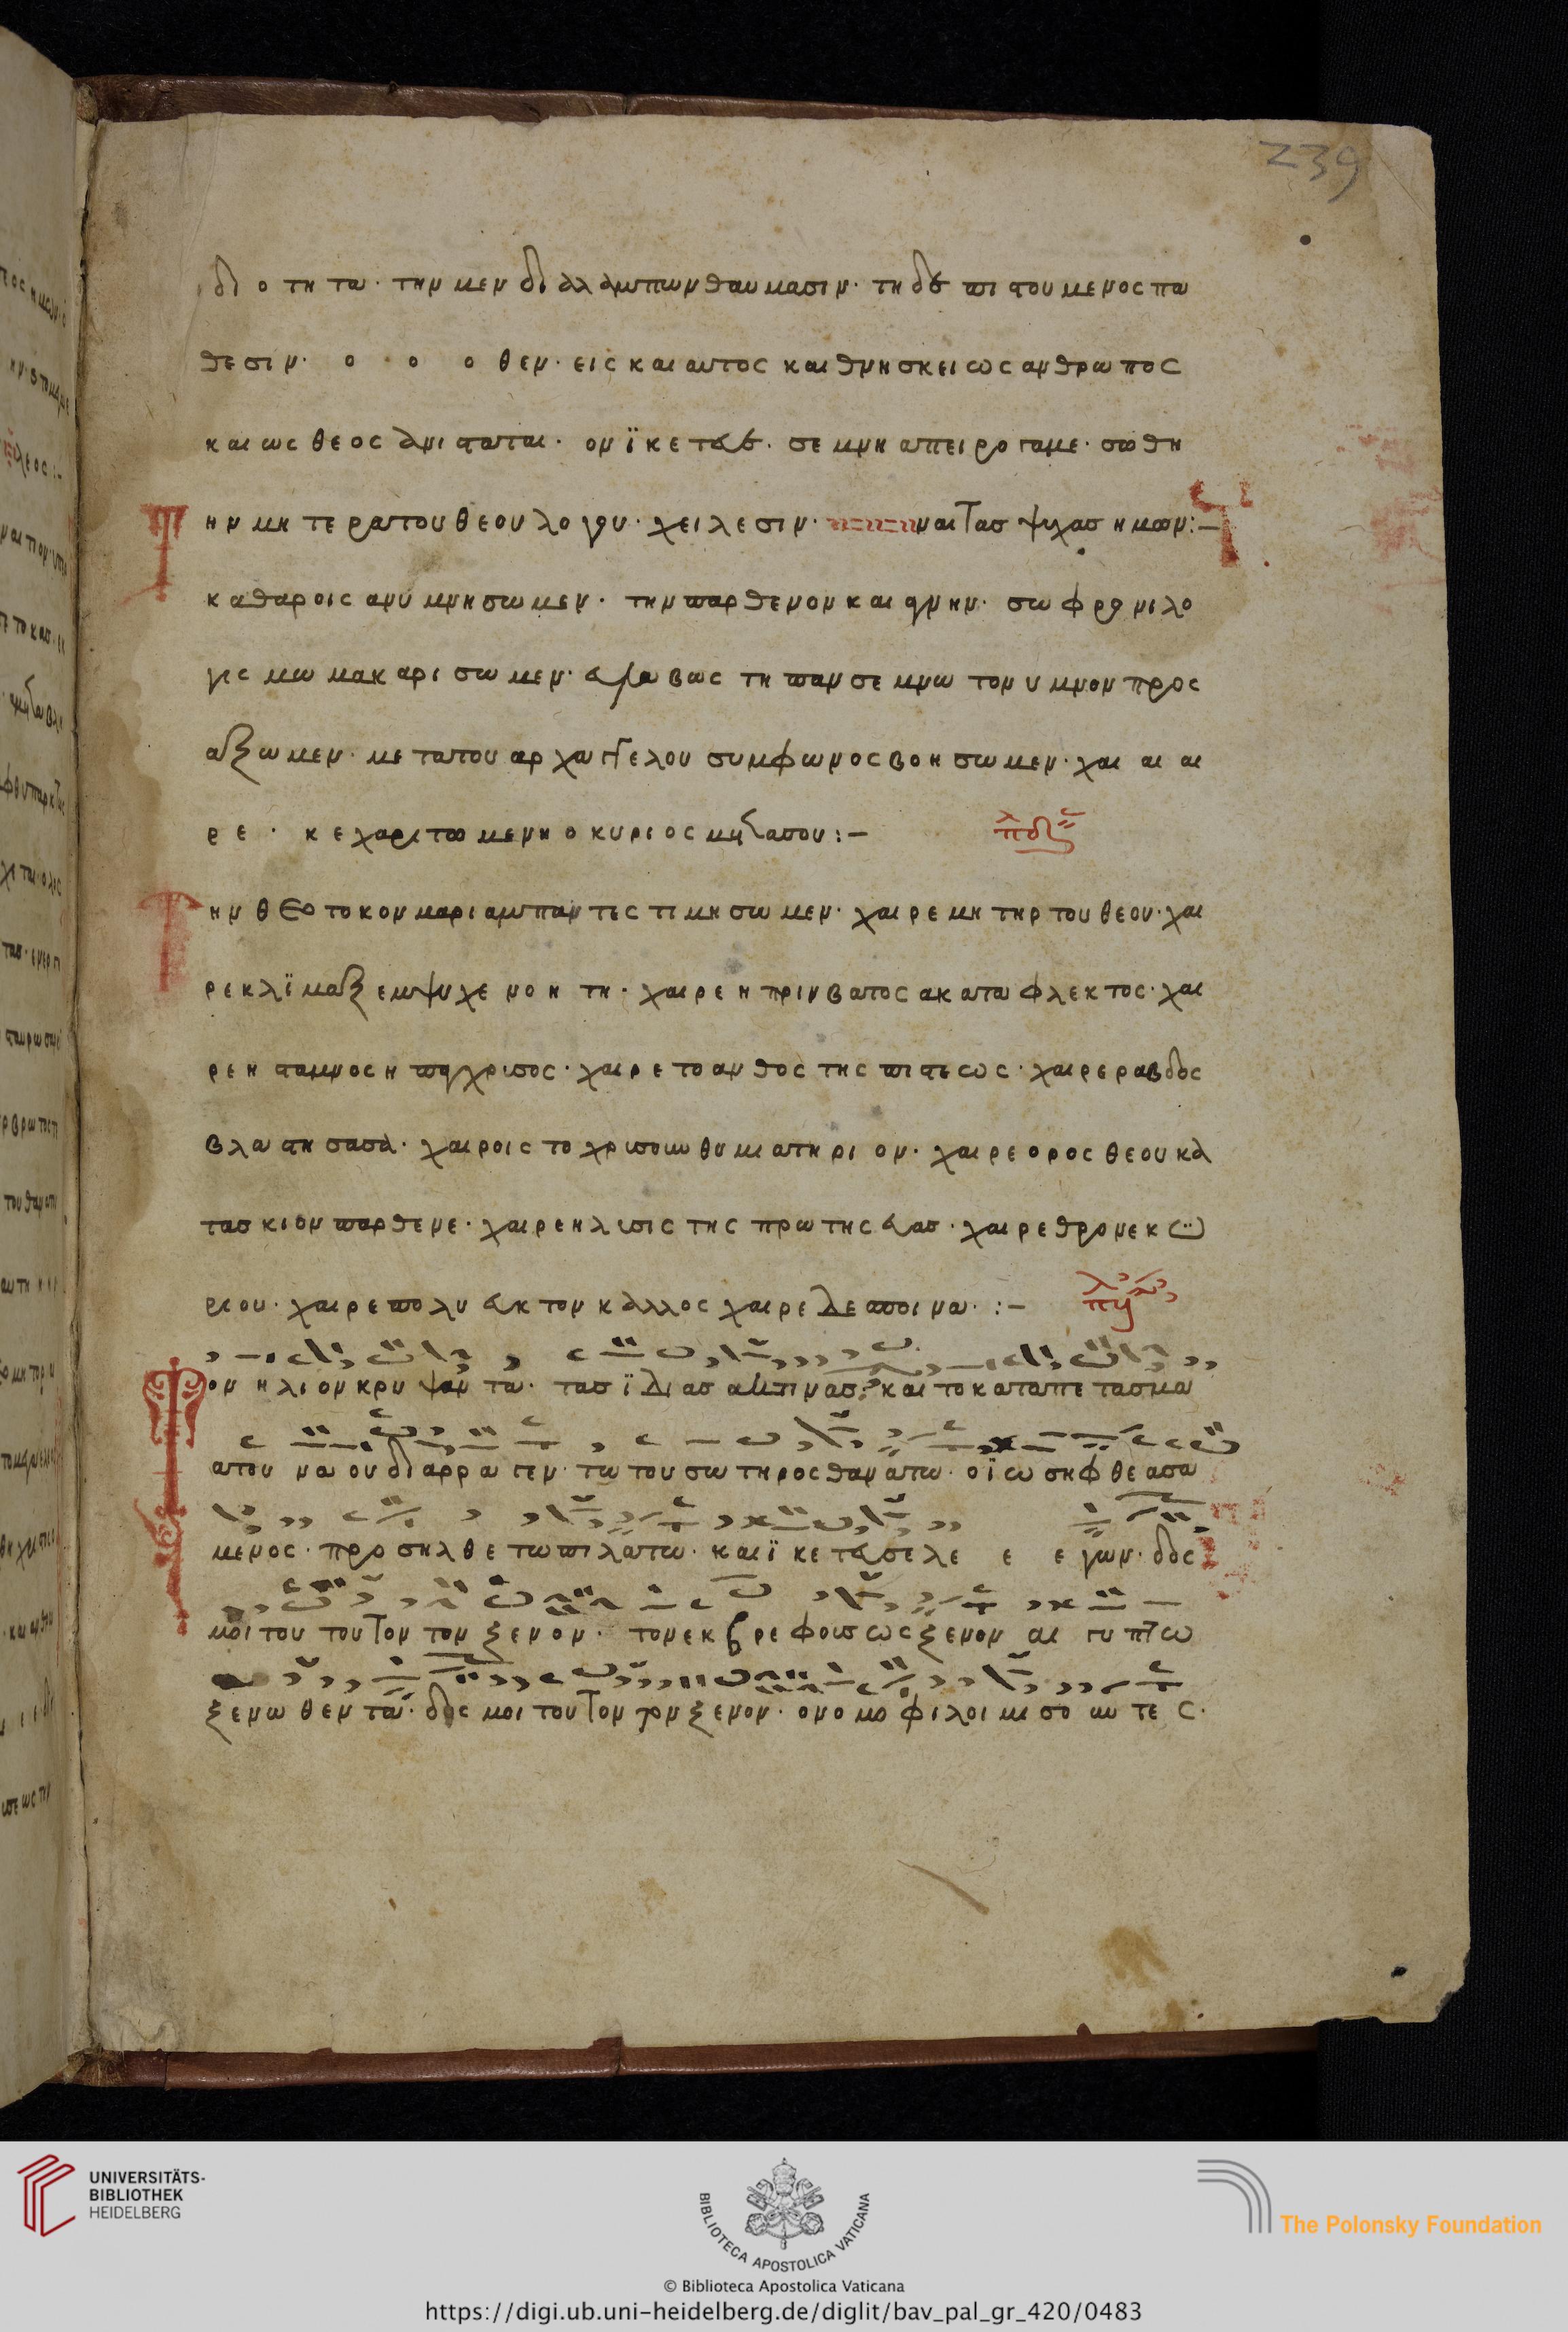 239
διοτητα· την μεν διαλαμπων θαυμασιν· τη δε πιστουμενος πα
θεσιν· ο ο ο θεν· εις και αυτος και θνησκει ως ανθρωπος
και ως θεος ανισταται· ον ϊκετευε· σεμνη απειρογαμε· σωθη
ναι τας ψυχας ημων:-
Την μητερα του θεου λογου· χειλεσιν·
καθαροις ανυμνησωμεν· την παρθενον και αγνην· σωφρονι λο
γισμω μακαρισωμεν· ευλαβως τη πανσεμνω τον υμνον προς
αξωμεν· μετα του αρχαγγελου συμφωνος βοησωμεν· χαι αι αι
ρε· κεχαριτωμενη ο κυριος μετα σου:-
Την θεοτοκον μαριαμ παντες τιμησωμεν· χαιρε μητηρ του θεου· χαι
ρε κλϊμαξ εμψυχε νοητη· χαιρε η πριν βατος ακαταφλεκτος· χαι
ρε η σταμνος η παγχρισος· χαιρε το ανθος της πιστεως· χαιρε ραβδος
βλαστησασα· χαιροις το χρισουν θυμιατηριον· χαιρε ορος θεου κα
τασκιον παρθενε· χαιρε η λισις της πρωτης ευας· χαιρε θρονε κυ
ριου· χαιρε πολυευκτον καλλος χαιρε δεσποινα·:-
Τον ηλιον κρυψαντα· τας ϊδιας ακτινας· και το καταπετασμα
του ναου διαρραγεν· τω του σωτηρος θανατω· ο ϊωσηφ θεασα
μενος· προσηλθε τω πιλατω· και ϊκετευσε λε ε εγων· δος
μοι τουτον τον ξενον· τον εκ βρεφους ως ξενον αιγυπτω
ξενωθεντα· δος μοι τουτον τον ξενον· ον ομοφιλοι μισουντες·
UNIVERSITÄTS-
BIBLIOTHEK
HEIDELBERG
BIBLIOTECA APOSTOLICA VATICANA
The Polonsky Foundation
© Biblioteca Apostolica Vaticana
https://digi.ub.uni-heidelberg.de/diglit/bav_pal_gr_420/0483